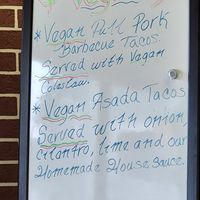 * Vegan Pull Pork
Barbecue Tacos.
Served with Vegan
Coleslaw.
* Vegan Asada Tacos
Served with onion,
cilantro, lime and our
Homemade House Sauce.